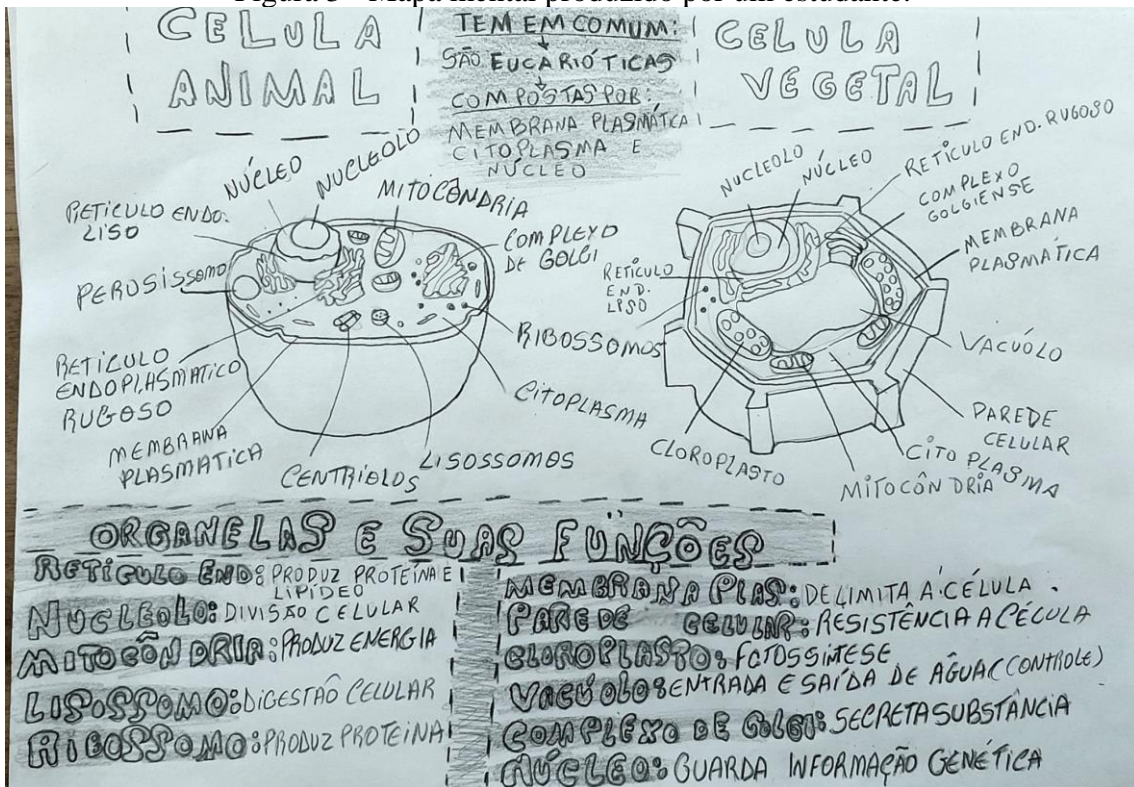 Figura 3 – Mapa mental produzido por um estudante.
CELULA
ANIMAL
TEM EM COMUM:
SÃO EUCARIÓTICAS
COMPOSTAS POR:
MEMBRANA PLASMÁTICA
CITOPLASMA E
NÚCLEO
CELULA
VEGETAL
NÚCLEO
NUCLEOLO
MITOCÔNDRIA
RETICULO ENDO.
LISO
COMPLEXO
DE GOLGI
PEROSISSOMO
RIBOSSOMOS
RETICULO
ENDOPLASMATICO
RUGOSO
CITOPLASMA
MEMBRANA
PLASMATICA
CENTRIOLOS
LISOSSOMOS
NUCLEOLO
NÚCLEO
RETICULO END. RUGOSO
COMPLEXO
GOLGIENSE
MEMBRANA
PLASMÁTICA
RETÍCULO
END.
LISO
VACUÓLO
PAREDE
CELULAR
CLOROPLASTO
CITOPLASMA
MITOCÔNDRIA
ORGANELAS E SUAS FUNÇÕES
RETÍCULO END: PRODUZ PROTEÍNA E
LIPÍDEO
NUCLEOLO: DIVISÃO CELULAR
MITOCÔNDRIA: PRODUZ ENERGIA
LISOSSOMO: DIGESTAÕ CELULAR
RIBOSSOMO: PRODUZ PROTEINA
MEMBRANA PLAS: DELIMITA A CÉLULA.
PAREDE CELULAR: RESISTÊNCIA A CÉLULA
CLOROPLASTO: FOTOSSÍNTESE
VACÚOLO: ENTRADA E SAÍDA DE ÁGUA (CONTROLE)
COMPLEXO DE GOLGI: SECRETA SUBSTÂNCIA
NÚCLEO: GUARDA INFORMAÇÃO GENÉTICA